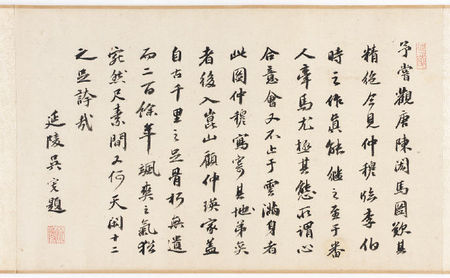 予嘗觀唐陳閎馬圖歎其
精絶今見仲穆臨李伯
時之作真能継之至于番
人牽馬尤極其態所謂心
合意會又不止于雲滿身者
此圖仲穆寓寄其
者後入崑山顧仲瑛家蓋
自古千里之足骨朽無遺
而二百餘年颯爽之氣猶
宛然尺素間又何天閑十二
之足誇哉
延陵吳寬題